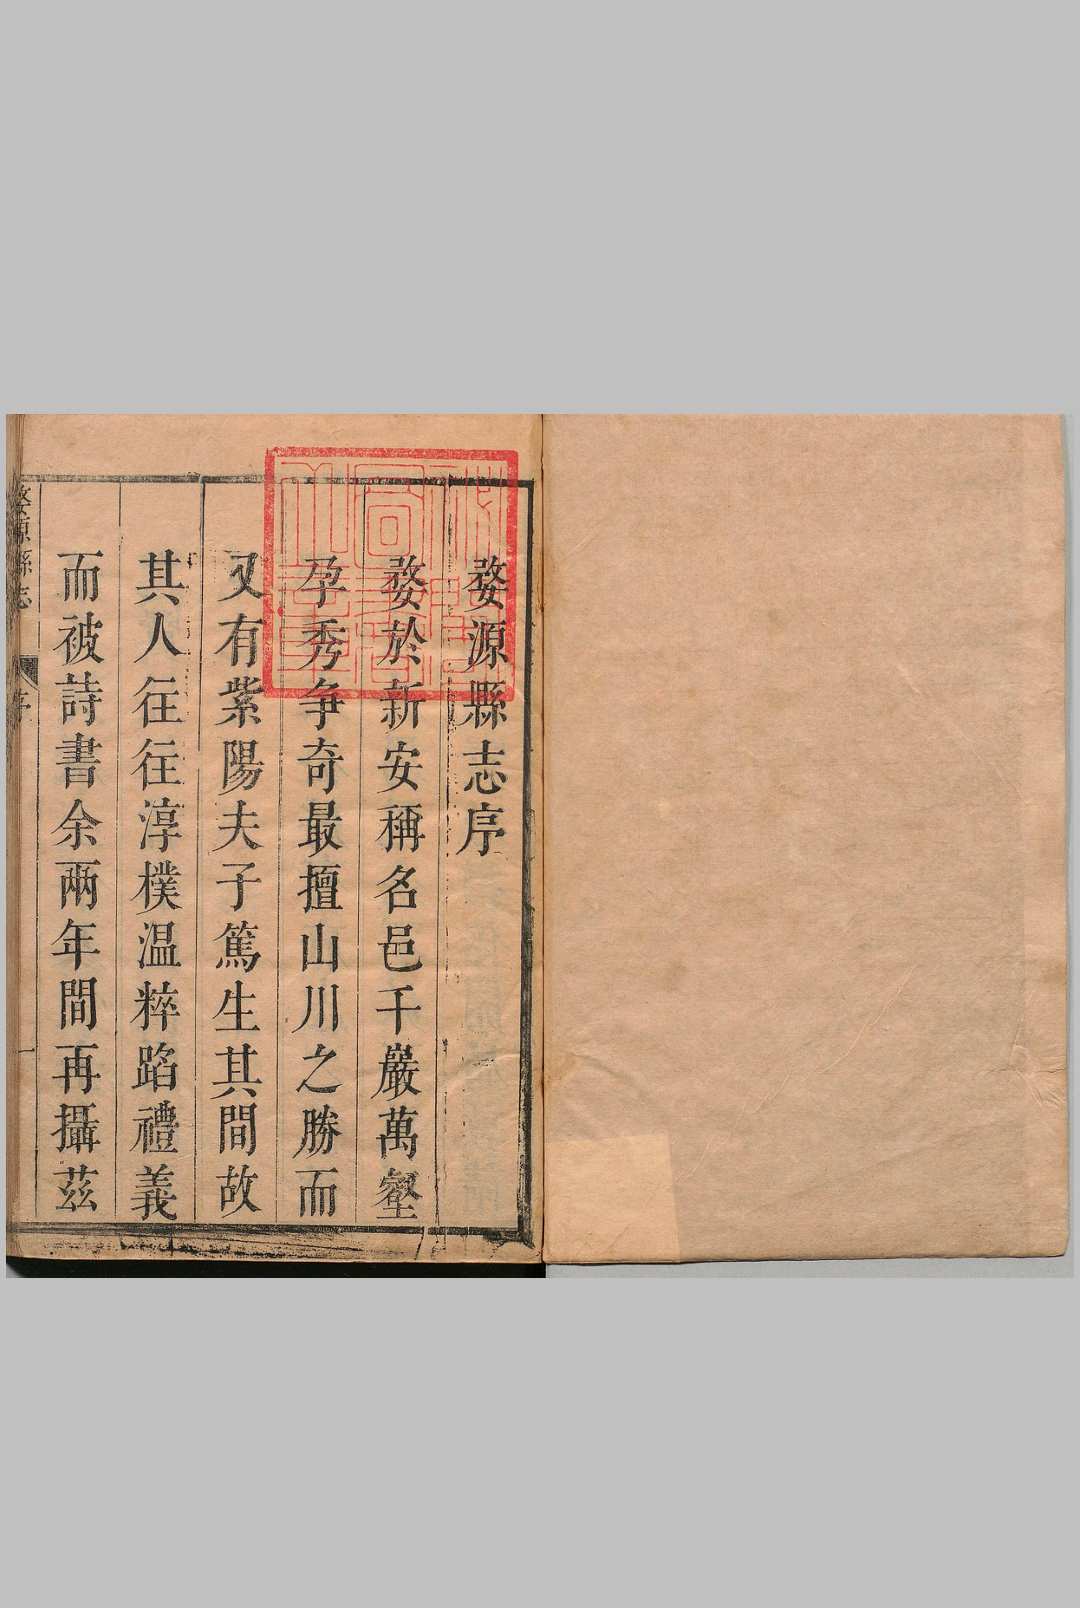 婺源縣志序
婺於新安稱名邑千巖萬壑
孕秀争奇最擅山川之勝而
又有紫陽夫子篤生其間故
其人往往淳樸温粹蹈禮義
而被詩書余兩年間再攝茲
婺源縣志
序
一